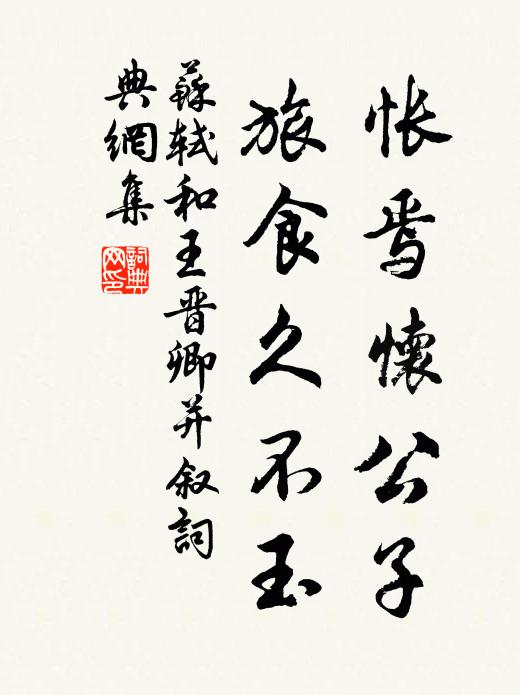 悵焉懷公子
旅食久不玉
蘇軾和王晉卿并叙詞
典網集
詞典網印